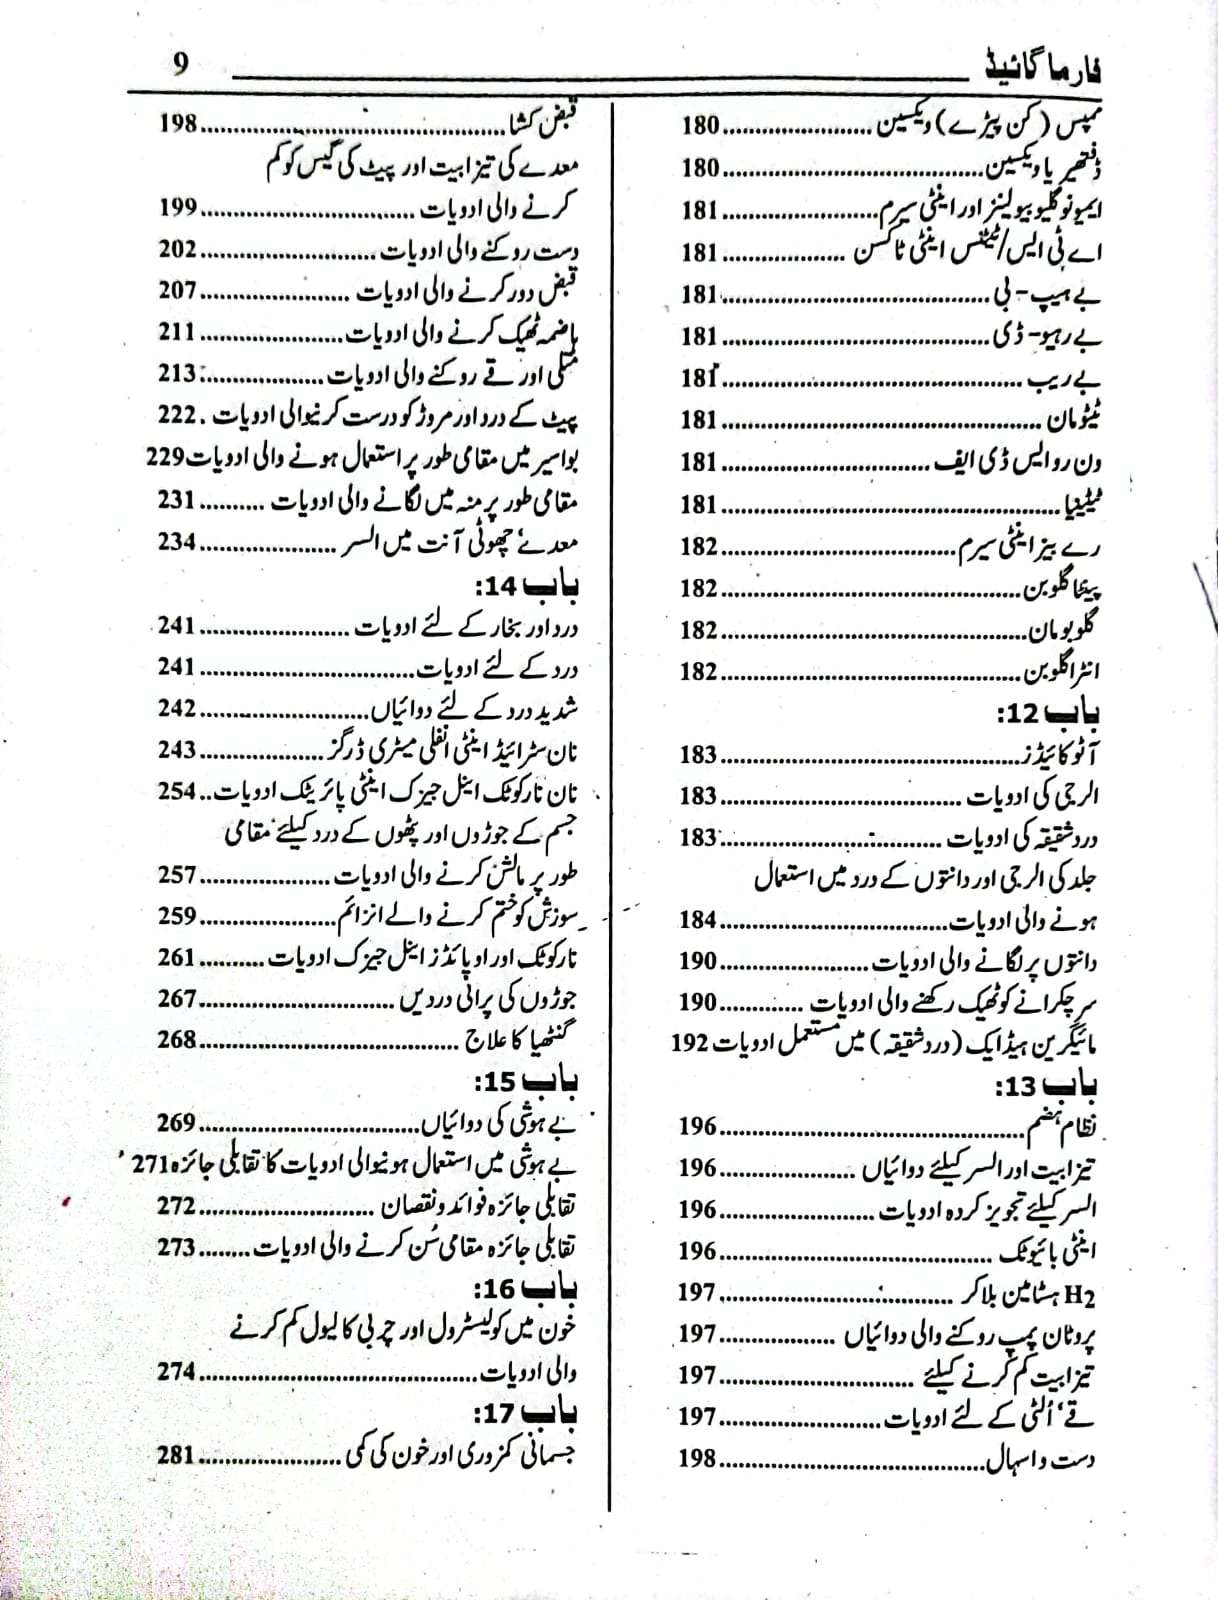 فارما گائیڈ ــــــــــــــــــــــــــــــ 9
ممپس (کن پیڑے) ویکسین.......................180
ڈفتھیریا ویکسین........................................180
ایمونوگلیوبیولینز اور اینٹی سیرم........................181
اے ٹی ایس/ٹیٹنس اینٹی ٹاکسن ...................181
بے ہیپ - بی.........................................181
بے رہیو- ڈی.........................................181
بے ریب ..............................................181
ٹیٹومان.................................................181
ون رو ایس ڈی ایف................................181
ٹیٹینیا....................................................181
رے بیز اینٹی سیرم....................................182
پینٹا گلوبن..............................................182
گلوبومان...............................................182
انٹرا گلوبن..............................................182
باب 12:
آٹوکائیڈز..............................................183
الرجی کی ادویات .....................................183
درد شقیقہ کی ادویات ..................................183
جلد کی الرجی اور دانتوں کے درد میں استعمال
ہونے والی ادویات...................................184
دانتوں پر لگانے والی ادویات.......................190
سر چکرانے کو ٹھیک رکھنے والی ادویات .............190
مائیگرین ہیڈایک (درد شقیقہ) میں مستعمل ادویات 192
باب 13:
نظام ہضم...............................................196
تیزابیت اور السر کیلئے دوائیاں .....................196
السر کیلئے تجویز کردہ ادویات ........................196
اینٹی بائیوٹک ..........................................196
H2 ہسٹامین بلاکر ....................................197
پروٹان پمپ روکنے والی دوائیاں ..................197
تیزابیت کم کرنے کیلئے ..............................197
قے، اُلٹی کے لئے ادویات.........................197
دست و اسہال.........................................198
قبض کشا...............................................198
معدے کی تیزابیت اور پیٹ کی گیس کو کم
کرنے والی ادویات .................................199
دست روکنے والی ادویات...........................202
قبض دور کرنے والی ادویات .......................207
ہاضمہ ٹھیک کرنے والی ادویات......................211
متلی اور قے روکنے والی ادویات...................213
پیٹ کے درد اور مروڑ کو درست کرنیوالی ادویات .222
بواسیر میں مقامی طور پر استعمال ہونے والی ادویات229
مقامی طور پر منہ میں لگانے والی ادویات ..........231
معدے، چھوٹی آنت میں السر .....................234
باب 14:
درد اور بخار کے لئے ادویات .......................241
درد کے لئے ادویات.................................241
شدید درد کے لئے دوائیاں..........................242
نان سٹرائیڈ اینٹی انفلی میٹری ڈرگز...................243
نان نارکوٹک اینل جیزک اینٹی پائریٹک ادویات..254
جسم کے جوڑوں اور پٹھوں کے درد کیلئے مقامی
طور پر مالش کرنے والی ادویات ....................257
سوزش کو ختم کرنے والے انزائم.....................259
نارکوٹک اور اوپائڈز اینل جیزک ادویات ..........261
جوڑوں کی پرانی دردیں ..............................267
گنٹھیا کا علاج ........................................268
باب 15:
بے ہوشی کی دوائیاں.................................269
بے ہوشی میں استعمال ہونیوالی ادویات کا تقابلی جائزہ271
تقابلی جائزہ فوائد و نقصان ...........................272
تقابلی جائزہ مقامی سُن کرنے والی ادویات ........273
باب 16:
خون میں کولیسٹرول اور چربی کا لیول کم کرنے
والی ادویات...........................................274
باب 17:
جسمانی کمزوری اور خون کی کمی......................281